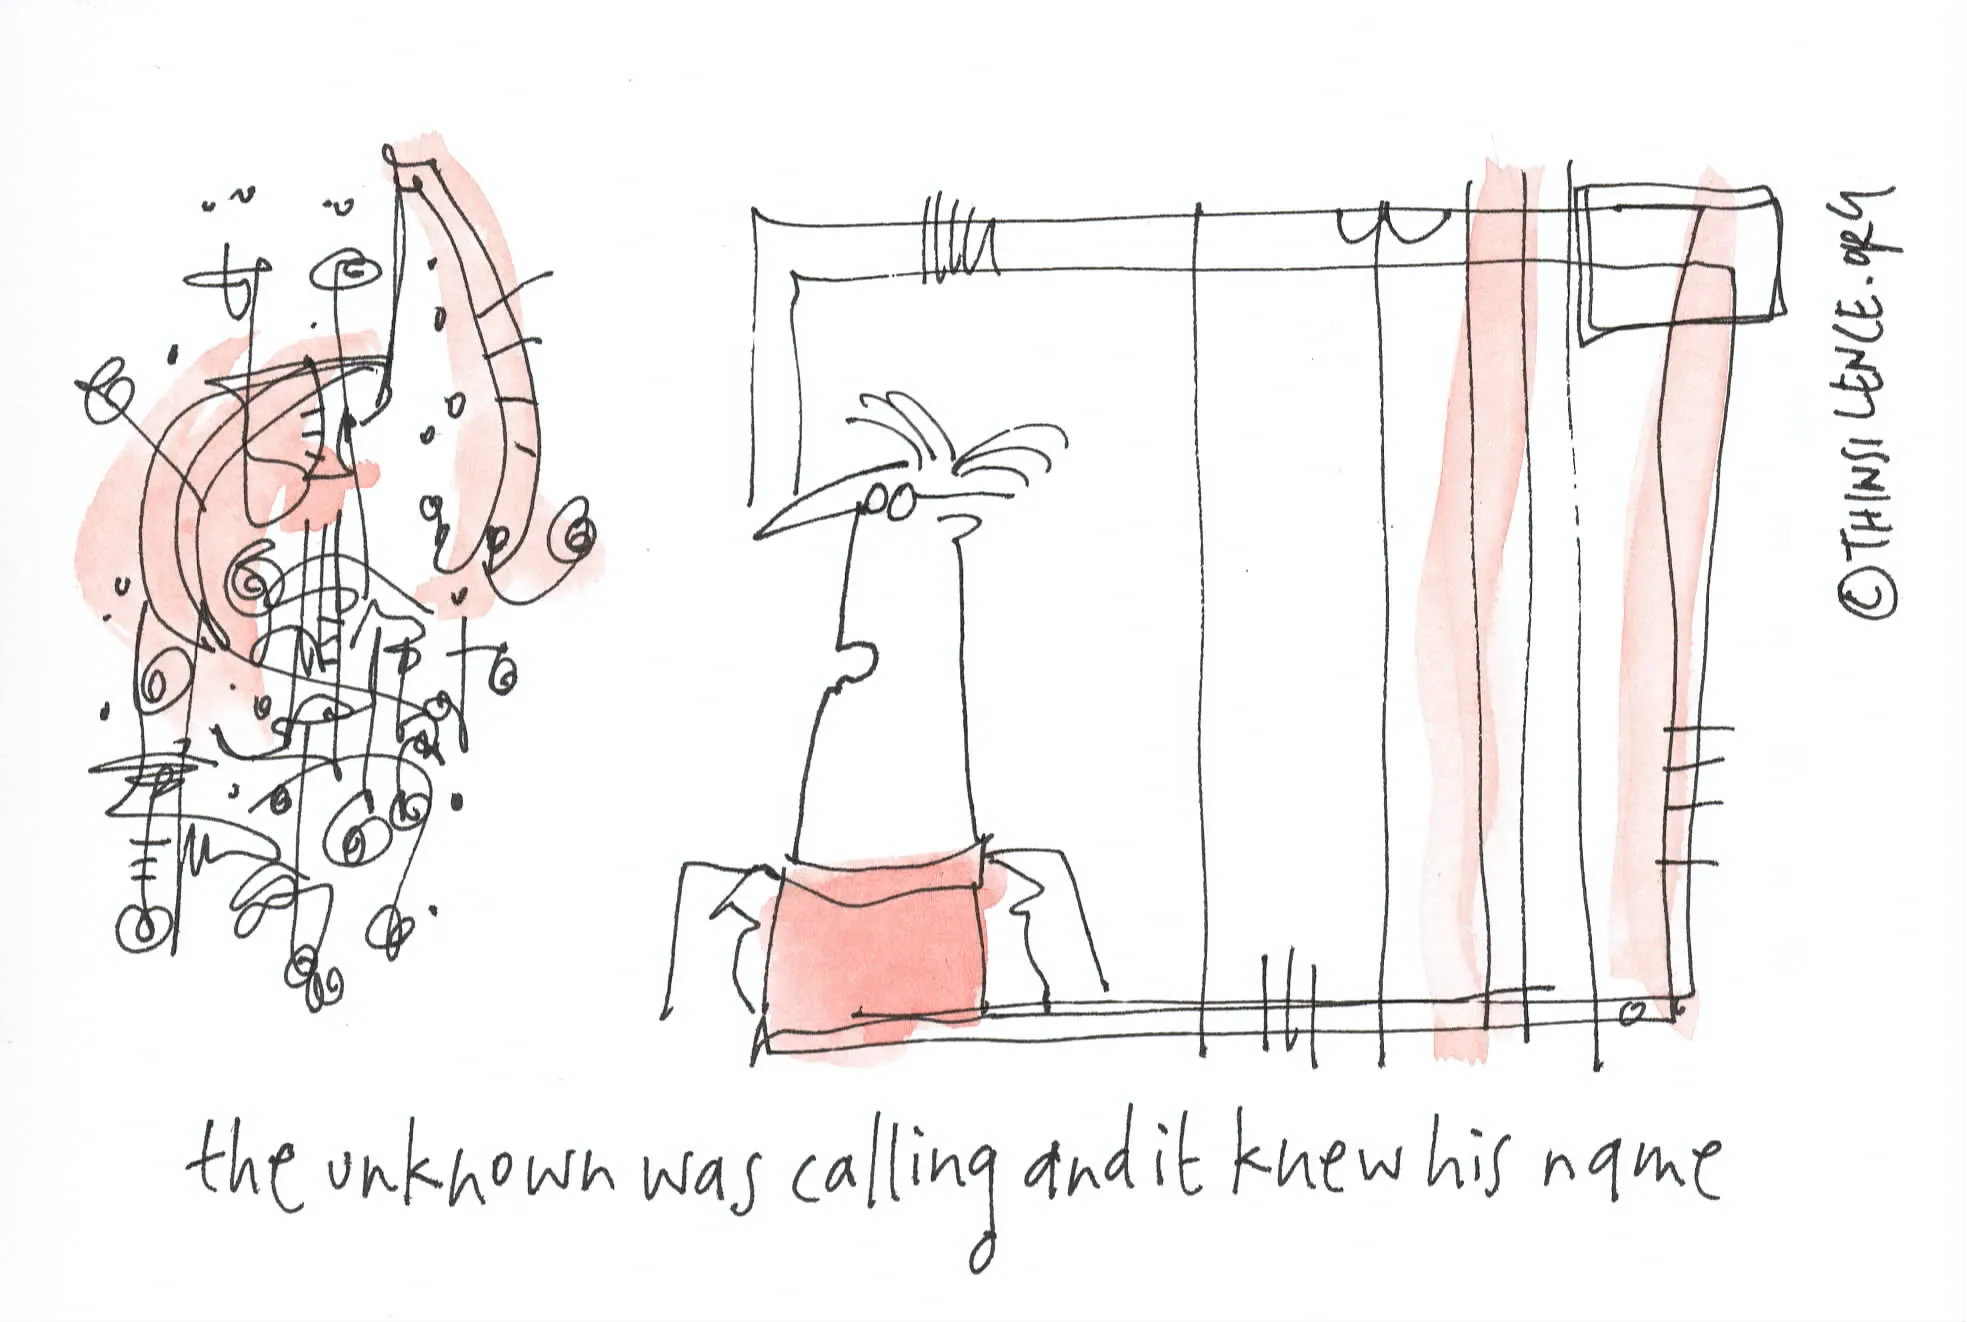 the unknown was calling and it knew his name
© THINSILENCE.ORG